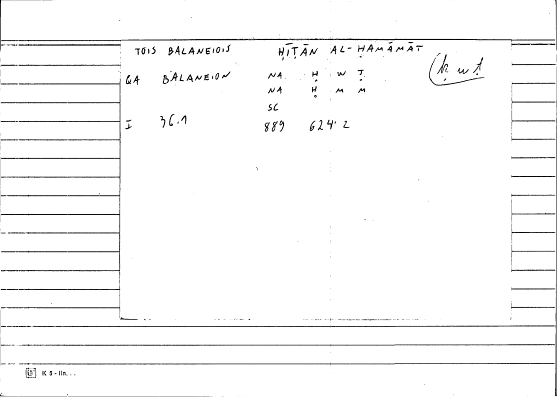 TOIS BALANEIOIS ḤĪṬĀN AL-ḤAMĀMĀT
GA BALANEION NA Ḥ W Ṭ (ḥwṭ
NA Ḥ M M
SC
I 36.1 889 624.2
K 5 - lin...